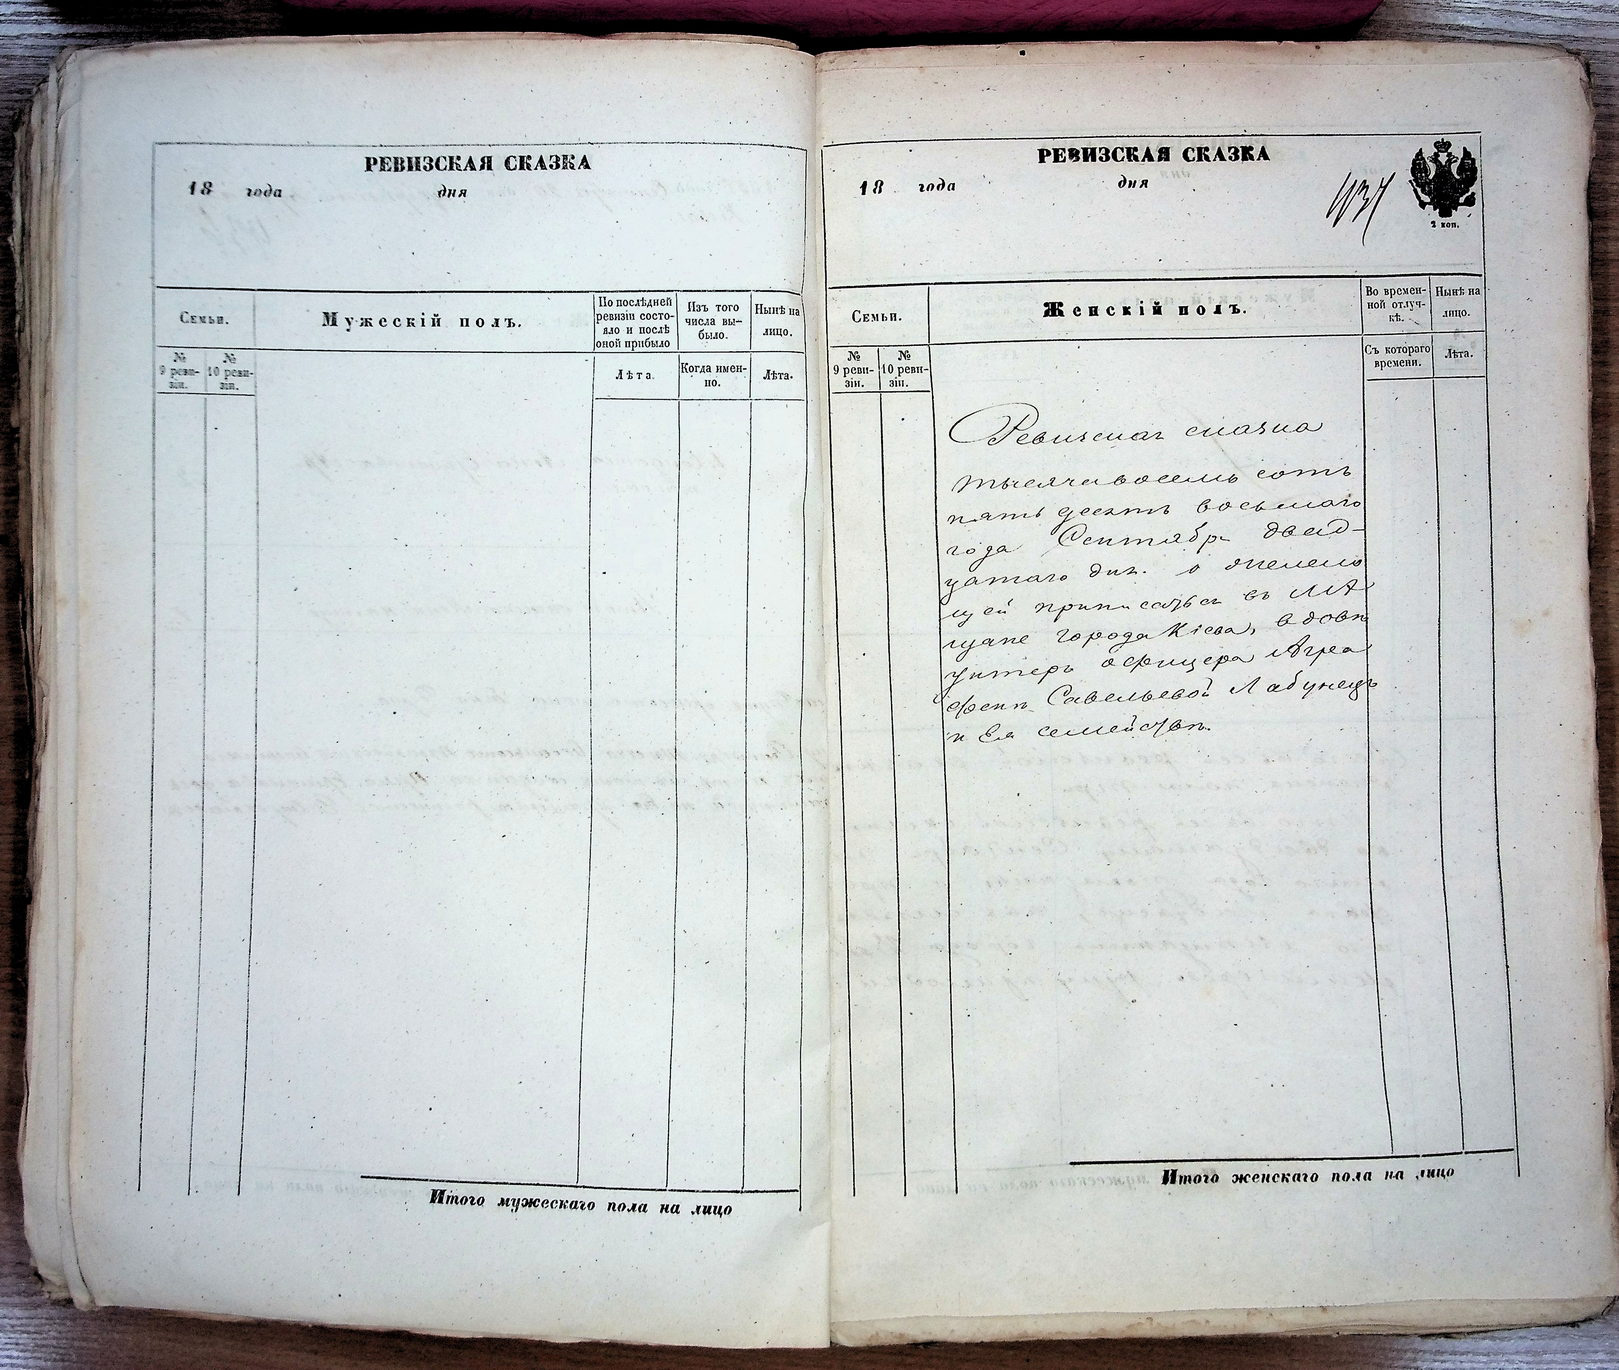 РЕВИЗСКАЯ СКАЗКА
18 года дня
Семьи.
Мужескій полъ.
По послѣдней
ревизіи состо-
яло и послѣ
оной прибыло
Изъ того
числа вы-
было.
Нынѣ на
лицо.
№
9 реви-
зіи.
№
10 реви-
зіи.
Лѣта.
Когда имен-
но.
Лѣта.
Итого мужескаго пола на лицо
РЕВИЗСКАЯ СКАЗКА
18 года дня
2 коп.
Семьи.
Женскій полъ.
Во времен-
ной отлуч-
кѣ.
Нынѣ на
лицо.
№
9 реви-
зіи.
№
10 реви-
зіи.
Съ котораго
времени.
Лѣта.
Ревизская сказка
тысяча восемь сотъ
пять десятъ восьмаго
года Сентября двад-
цатаго дня. о желаю
щей приписаться въ мѣ
щане города Кіева, вдовѣ
унтеръ офицера Агра
фенѣ Савельевой Лабунецъ
и Ея семействѣ.
Итого женскаго пола на лицо